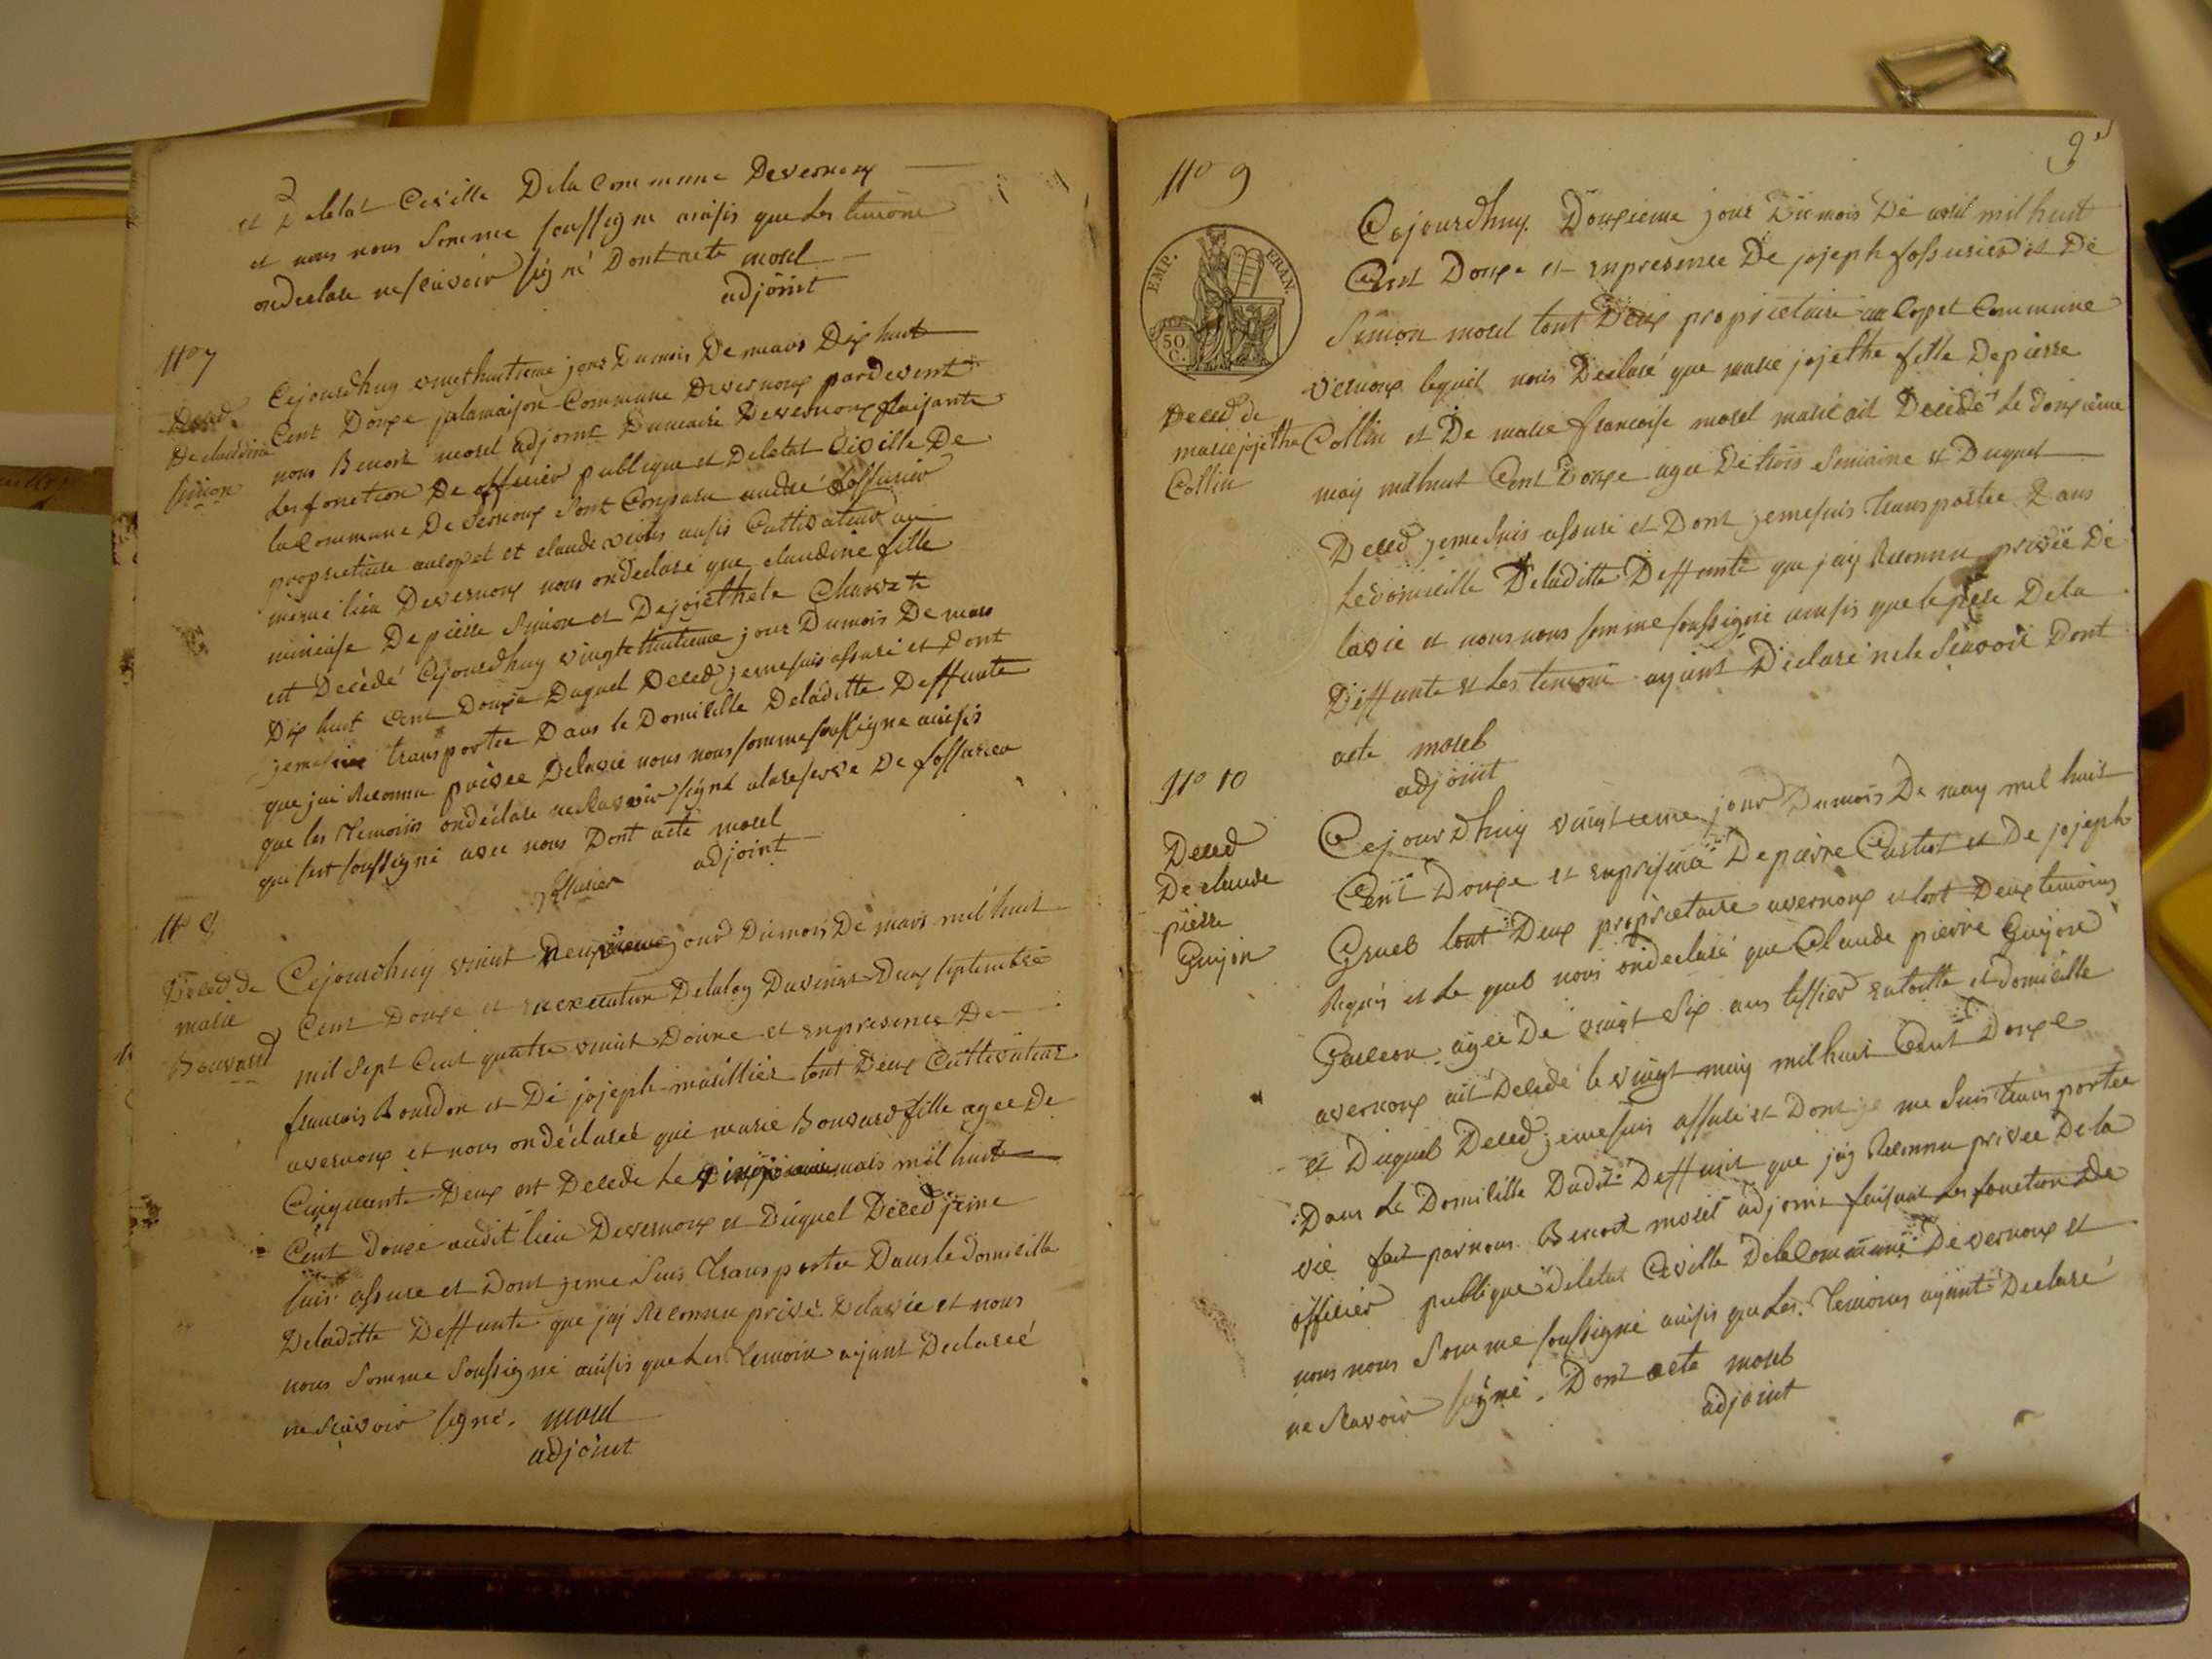 et De letat Civille De la Commune Devernoux
et nous nous Somme soussigne ainsis que Les temoins
ondeclare ne scavoir signé Dont acte morel
adjoint
No 7
Deced
De claudine
Simon
Cejourdhuy vingthuitieme jour Dumois De mars Dix huit
Cent Douze jalamaison Commune Devernoux pardevent
nous Benoit morel adjoint Dumaire Devernoux faisante
Les fonction De officier publique et Deletat Civille De
la Commune De vernoux Sont Comparu andré fossurier
proprietaire aulopet et claude ainsis Cultivateur au
meme lieu Devernoux nous ondeclaré que claudine fille
mineuse De pierre Simon et De
est Decédé Cejourdhuy vingthuitieme jour Dumois De mars
Dix huit Cent Douze Duquel Deced jemesuis assuré et Dont
jemesuis transportée Dans le Domicille Deladitte Deffunte
que jai Reconnu privee Delavie nous nous somme soussigne ainsis
que les temoins ondéclare ne scavoir signé alareserve De fossurier
qui sest soussigné avec nous Dont acte morel
fossurier adjoint
No 8
Deced de
marie
Bouvard
Cejourdhuy vint jour Dumois De mars mil huit
Cent Douze et en execution Delaloy Duvingt Deux septembre
mil Sept Cent quatre vint Douze et enpresence De
francois Bourdon et De jojeph tout Deux Cultivateur
avernoux et nous ondéclareé que marie Bouvard fille agee De
Cinquante Deux est Decede Le mars mil huit
Cent Douze audit lieu Devernoux et Duquel Deced jeme
suis assure et Dont jeme Suis transportee Dans le Domicille
Deladitte Deffunte que jaj Reconnu privé Delavie et nous
nous Somme Soussigné ainsis que Les temoin ajant Declareé
ne Scavoir signé. morel
adjoint
9
No 9
EMP. FRAN.
50
C.
Deced de
marie jojethe
Collin
Cejourdhuy. Douzieme jour Dumois De avril mil huit
Cent Douze et enpresence De jojeph fossurier et De
Simon morel tout Deux proprietaire au lopet Commune
vernoux lequel nous Declaré que marie jojethe fille De pierre
Collin et De marie francoise morel marie ait Decédé Le Douzieme
maij mil huit Cent Douze agee De trois Semaine et Duquel
Deced jeme Suis assuré et Dont jemesuis transportee Dans
Le Domicille De laditte Deffunte que jaij Reconnu privee De
lavie et nous nous somme soussigné ainsis que le pere Dela
Deffunte et Les temoin ayant Declaré nele Scavoir Dont
acte morel
adjoint
No 10
Deced
De claude
pierre
Guijon
Cejourdhuy vingtieme jour Dumois De may mil huit
Cent Douze et enpresence De pierre Castet et De jojeph
tout Deux proprietaire avernoux et sont Deux temoins
Requis et Le quels nous ondeclaré que Claude pierre Guijon
Garcon agee De vingt Six ans tissier entoille et Domicille
avernoux ait Decede le vingt maij mil huit Cent Douze
et Duquel Deced jemesuis assuré et Dont je me Suis transportee
Dans Le Domicille Dudit Deffunt que jaij Reconnu privee De la
vie fait parnous Benoit morel adjoint faisant Les fonction De
officier publique Deletat Civille Dela Commune Devernoux et
nous nous Somme soussigné ainsis que Les. temoins ayant Declaré
ne Scavoir signé. Dont acte morel
adjoint